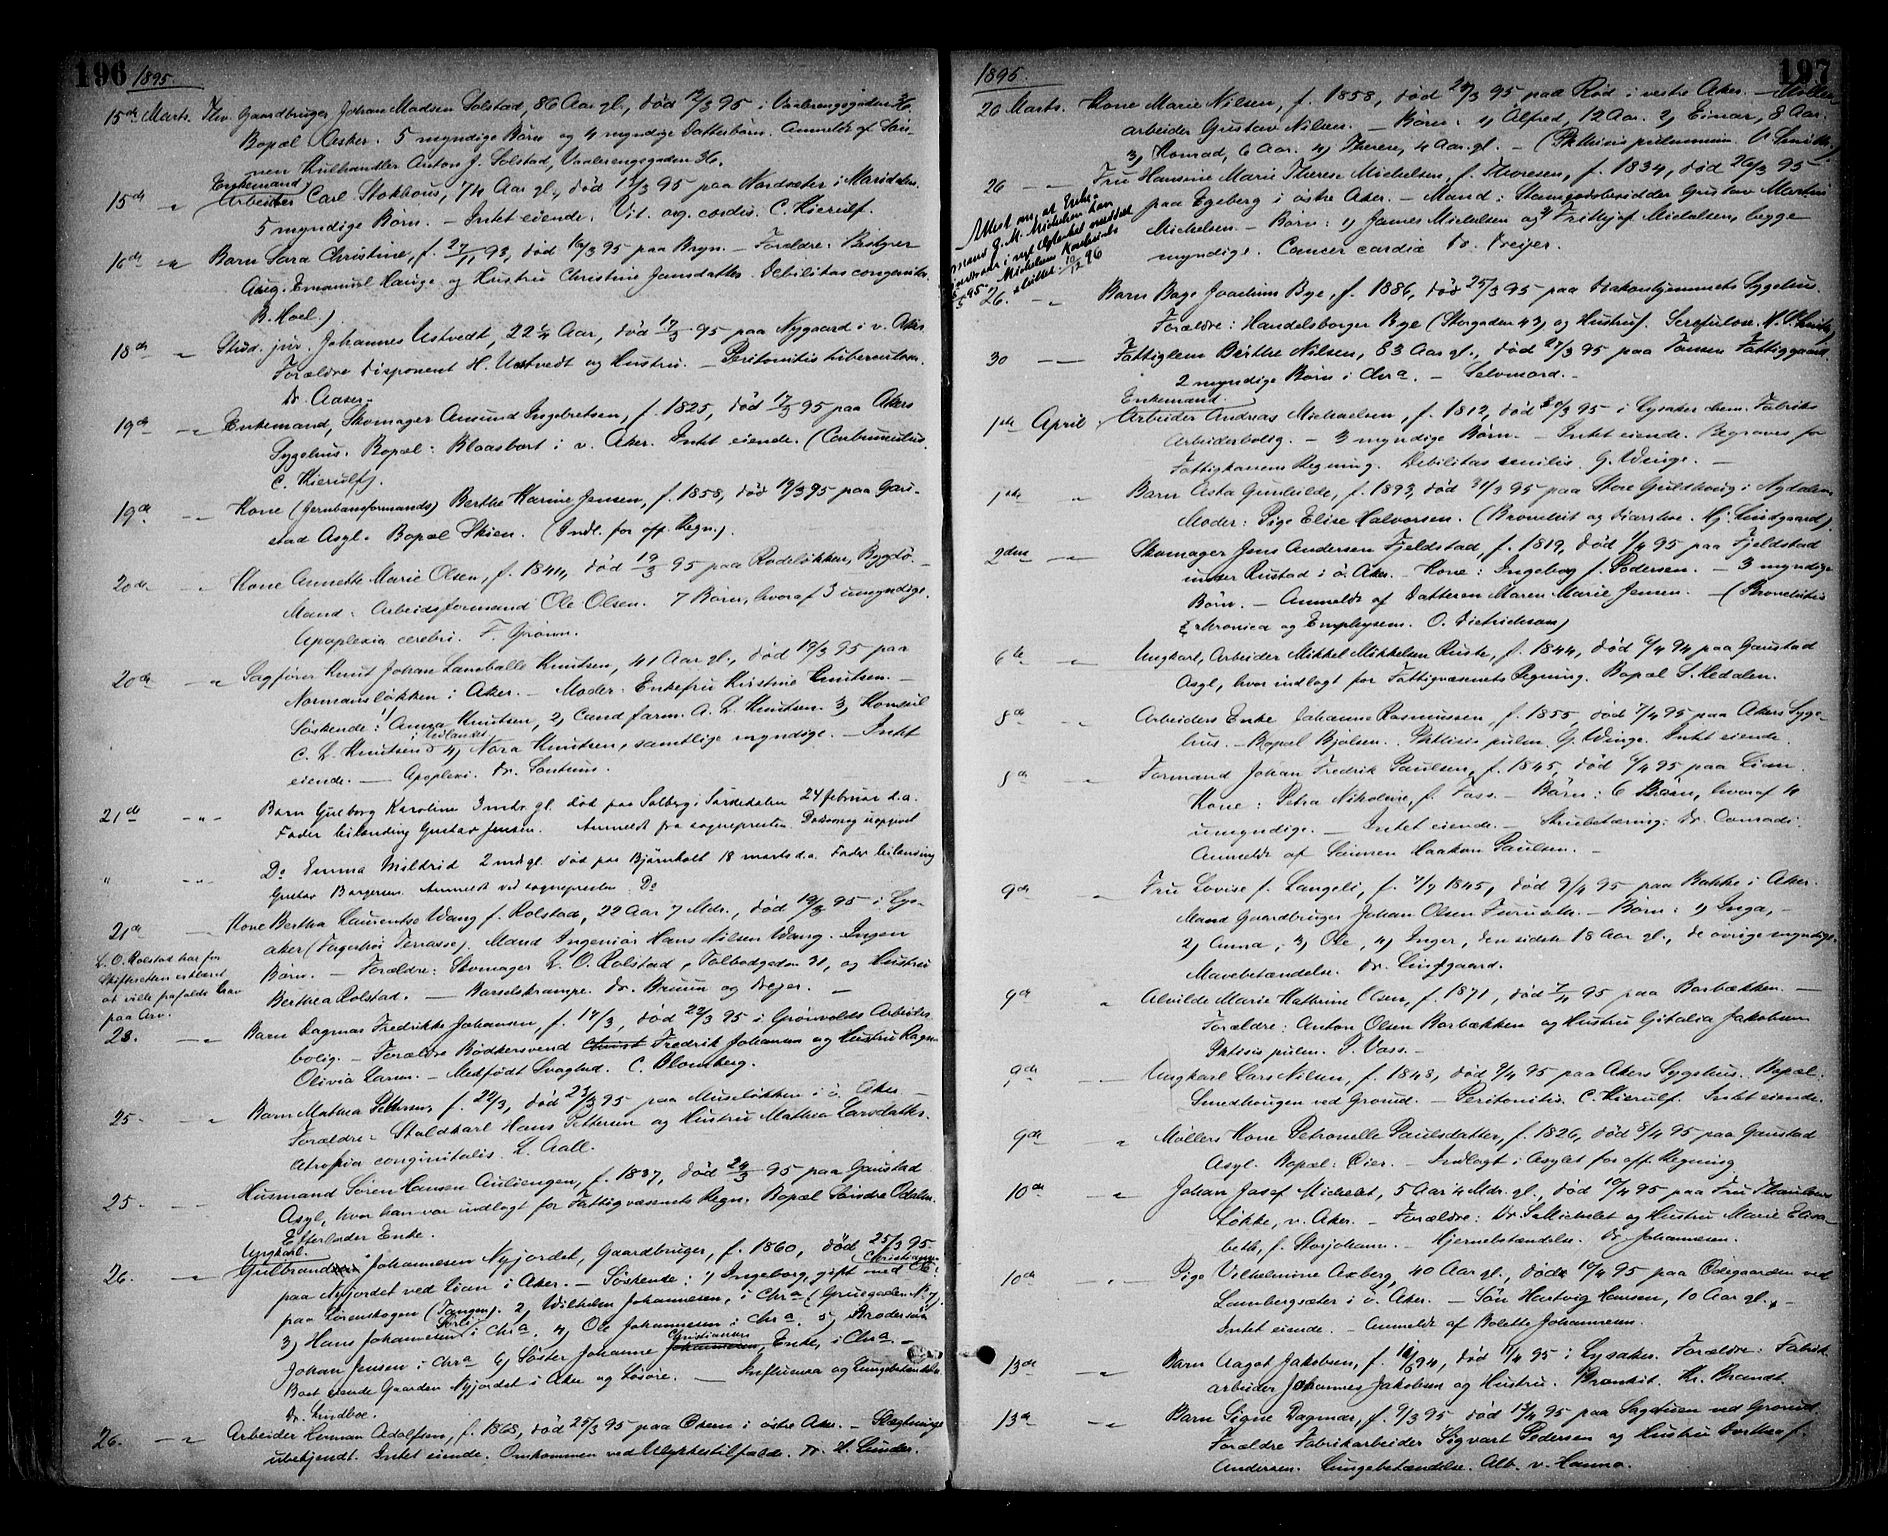 196 1895.
15de Marts. Fhv. Gaardbruger Johan Madsen Solstad, 86 Aar gl., død 12/3 95 i Vaalerengsgaden 36
Bopæl Asker. 5 myndige Børn og 4 myndige Datterbørn. Anmeldt af Søn-
nen Kulhandler Anton J. Solstad, Vaalerengsgaden 36.
Enkemand
15de " Arbeider Carl Stokhous, 74 Aar gl., død 12/3 95 paa Nordsæter i Maridalen.
5 myndige Børn. - Intet eiende. Vit. org. cordis. C. Kierulf.
16de " Barn Sara Christine, f. 27/11 93, død 16/3 95 paa Bryn. - Forældre: Bestyrer
Aug. Emanuel Hauge og Hustru Christine Jansdatter. Debilitas congenita.
B. Hoel.)
18de " Stud. jur. Johannes Ustvedt, 22 1/4 Aar, død 17/3 95 paa Nygaard i v. Aker
Forældre Disponent H. Ustvedt og Hustru. - Peritonitis tuberculosa.
Dr. Aaser.
19de " Enkemand, Skomager Amund Ingebretsen, f. 1825, død 17/3 95 paa Akers
Sygehus. Bopæl: Blaasbort i v. Aker. Intet eiende. (Carbunculus.
C. Kierulf).
19de " Kone (Jernbaneformands) Berthe Karine Jensen, f. 1858, død 19/3 95 paa Gau-
stad Asyl. Bopæl Skien. (Indl. for off. Regn.)
20de " Kone Annette Marie Olsen, f. 1841, død 19/3 95 paa Rodeløkken, Bygdø. -
Mand: Arbeidsformand Ole Olsen. 7 Børn, hvoraf 3 umyndige.
Apoplexia cerebri. F. Grønn.
20de " Sagfører Knut Johan Lamballe Knutsen, 41 Aar gl., død 19/3 95 paa
Normansløkken i Aker. - Moder: Enkefru Kirstine Knutsen. -
Søskende: 1) Anna Knutsen, 2) Cand. farm. A. L. Knutsen. 3) Konsul
C. L. Knutsen i Udlandet 4) Nora Knutsen, samtlige myndige. - Intet
eiende. - Apoplexi. Dr. Sontum.
21de " Barn Gueborg Karoline 3 mdr. gl. død paa Solberg i Sørkedalen 24 februar d.a.
Fader leilænding Gustav Jensen. Anmeldt fra sognepresten. Dødsaarsag uopgivet
" " Do Emma Mildrid 2 md gl. død paa Bjørnholt 18 marts d.a. Fader leilænding
Gustav Borgersen. Anmeldt ved sognepresten. Do
21de " Kone Bertha Laurentse Wang f. Rolstad, 22 Aar 7 Mdr., død 19/3 95 i Lys-
aker (Fagerhøi Terrasse). Mand Ingeniør Hans Nilsen Wang. Ingen
Børn. - Forældre: Skomager L. O. Rolstad, Tolbodgaden 31, og Hustru
Berthea Rolstad. - Barselskrampe. Dr. Bruun og Dreyer. -
L. O. Rolstad har for
Skifteretten erklæret
at ville frafalde Krav
paa Arv.
23. " Barn Dagmar Fredrikke Johansen, f. 14/3, død 22/3 95 i Grønvolds Arbeider-
bolig. - Forældre Bødkersvend Fredrik Johansen og Hustru Ragna
Olivia Larsen. - Medfødt Svaghed. C. Blomberg.
25. " Barn Mathea Pettersen, f. 22/3, død 23/3 95 paa Museløkken i ø. Aker -
Forældre: Staldkarl Hans Pettersen og Hustru Mathea Larsdatter.
Atrofia conginitalis. L. Aall.
25. " Husmand Søren Hansen Auliengen, f. 1837, død 24/3 95 paa Gaustad
Asyl, hvor han var indlagt for Fattigvæsenets Regn. Bopæl Søndre Odalen.
Efterlader Enke.
Ungkarl.
26. " Gulbrand Johannesen Nyjordet, Gaardbruger, f. 1860, død 25/3 95
paa Nyjordet ved Lian i Aker. - Søskende: 1) Ingeborg, gift med Christian
paa Lørenskogen (Tangen). 2) Wilhelm Johannesen, i Chra (Gruegaden No 7).
3) Hans Johannesen i Chra. 4) Ole Johannesen i Chra. 5) Brodersøn
Johan Jensen i Chra 6) Søster Johanne Christiansen Johannesen, Enke, i Chra -
Boet eiende Gaarden Nyjordet i Aker og Løsøre. - Influensa og Lungebetændelse
Dr. Lindboe.
26. " Arbeider Herman Adolfsen, f. 1868, død 25/3 95 paa Økern i østre Aker. - Slægtninge
ubekjendt. Intet eiende. Omkommen ved Ulykkestilfælde. Dr. H. Lunder.
1895. 197
26 Marts. Kone Marie Nilsen, f. 1858, død 24/3 95 paa Rød i vestre Aker. - Mølle-
arbeider Gustav Nilsen. - Børn: 1) Alfred, 12 Aar. 2) Einar, 8 Aar.
3) Konrad, 6 Aar. 4) Therese, 4 Aar gl. - (Phthisis pulmonum. O. Smith.)
26 " Fru Hansine Marie Therese Michelsen, f. Thoresen, f. 1834, død 26/3 95
paa Egeberg i østre Aker. - Mand: Gustav Martin
Michelsen. - Børn: 1) James Michelsen og 2) Frithjof Michelsen, begge
myndige. Cancer cardiæ Dr. Dreyer.
Attest om, at Enke-
mand G. M. Michelsen kan
hensidde i
95. Michelsen
meddelt 10/12 96
26. " Barn Bage Joachim Bye, f. 1886, død 25/3 95 paa Diakonhjemmets Sygehus.
Forældre: Handelsborger Bye (Storgaden 43) og Hustru. Scrofulose.
30 " Fattiglem Berthe Nilsen, 83 Aar gl., død 27/3 95 paa Tonsen Fattiggaard.
2 myndige Børn i Chra. - Selvmord. -
Enkemand.
1ste April. Arbeider Andreas Michaelsen, f. 1812, død 30/3 95 i Lysaker chem. Fabriks
Arbeiderbolig. - 3 myndige Børn. - Intet eiende. Begraves for
Fattigkassens Regning. Debilitas senilis. G. Winge. -
1ste " Barn Asta Gunhilde, f. 1893, død 31/3 95 paa Store Guldhaug i Nydalen
Moder: Pige Elise Halvorsen. (Bronchit og Diarrhoe. Hj. Lindgaard).
2den " Skomager Jens Andersen Fjeldstad, f. 1819, død 1/4 95 paa Fjeldstad
under Rustad i ø. Aker. - Kone: Ingeborg f. Pedersen. - 3 myndige
Børn. - Anmeldt af Datteren Maren Marie Jensen. - (Bronchitis
chronica og Emphysem. O. Dietrichson)
6te " Ungkarl, Arbeider Mikkel Mikkelsen Ruste, f. 1844, død 6/4 94 paa Gaustad
Asyl, hvor indlagt for Fattigvæsenets Regning. Bopæl S. Hedalen.
8de " Arbeiders Enke Johanne Rasmussen, f. 1855, død 7/4 95 paa Akers Syge-
hus. - Bopæl Bjølsen. Phtisis pulm. G. Winge. Intet eiende.
8de " Formand Johan Fredrik Paulsen, f. 1845, død 6/4 95 paa Lian.
Kone: Petra Nikoline, f. Foss. - Børn: 6 Børn, hvoraf 4
umyndige. - Intet eiende. - Strubetæring: Dr. Conradi.
Anmeldt af Sønnen Haakon Paulsen. -
9de " Fru Lovise f. Langeli, f. 7/7 1845, død 9/4 95 paa Bakke i Aker.
Mand Gaardbruger Johan Olsen Furuseth. - Børn: 1) Inga, -
2) Anna, 3) Ole, 4) Inger, den sidste 18 Aar gl., de øvrige myndige.
Mavebetændelse. Dr. Lindgaard.
9de " Alvilde Marie Kathrine Olsen, f. 1871, død 7/4 95 paa Barbækken. -
Forældre: Anton Olsen Barbækken og Hustru Gitalia Jakobsen
Phtisis pulm. P. Voss. -
9de " Ungkarl Lars Nilsen, f. 1848, død 9/4 95 paa Akers Sygehus. Bopæl
Smedhougen ved Grorud. - Peritonitis. C. Kierulf. Intet eiende.
9de " Møllers Kone Petronelle Paulsdatter, f. 1826, død 8/4 95 paa Gaustad
Asyl. Bopæl: Øier. - Indlagt i Asylet for off. Regning
10de " Johan Josef Michelet, 5 Aar 4 Mdr. gl., død 10/4 95 paa Fru Thaulows
Løkke, v. Aker. - Forældre: Dr S. Michelet og Hustru Marie Elisa-
beth, f. Storjohann. - Hjernebetændelse. Dr. Johannesen.
10de " Pige Vilhelmine Axberg, 40 Aar gl., død 10/4 95 paa Ødegaarden ved
Lambergsæter i ø. Aker. - Søn Hartvig Hansen, 10 Aar gl. -
Intet eiende. - Anmeldt af Bolette Johannesen.
13de " Barn Aagot Jakobsen, f. 94, død 11/4 95 i Lysaker. Forældre: Fabrik-
arbeider Johannes Jakobsen og Hustru. Bronkit. Kr. Brandt.
13de " Barn Signe Dagmar, f. 9/3 95 død 12/4 95 paa Sagstuen ved Grorud.
Forældre Fabrikarbeider Sigvart Pedersen og Hustru Dorthea f.
Andersen. Lungebetændelse. Alb. v. Hanno.